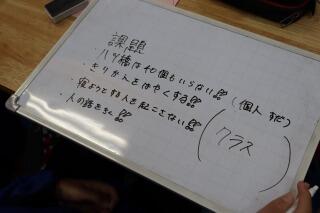 課題
・八ツ橋は40個もいらない!!
・きりかえをはやくする!!(個人 まだ)
・寝ようとする人を起こさない!!
・人の話をきく!!
(クラス)